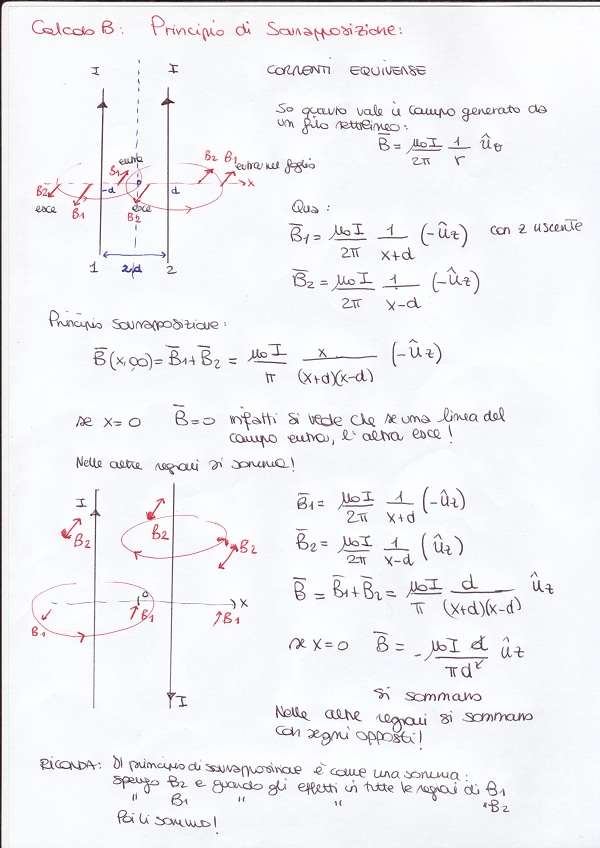 Calcolo B: Principio di Sovrapposizione:
I I
CORRENTI EQUIVERSE
So quanto vale il campo generato da
un filo rettilineo:
B̅ = μ0 I / 2π 1 / r û_θ
entra
B1
B2 B1
entra nel foglio
B2
-d
o
d
x
esce
B1
esce
B2
1 2d 2
Qua:
B̅1 = μ0 I / 2π 1 / x+d (-û_z) con z uscente
B̅2 = μ0 I / 2π 1 / x-d (-û_z)
Principio sovrapposizione:
B̅(x,0,0) = B̅1 + B̅2 = μ0 I / π x / (x+d)(x-d) (-û_z)
se x=0 B̅=0 infatti si vede che se una linea del
campo entra, l'altra esce!
Nelle altre regioni si somma!
I
B2
B2
B2
o
x
B1
B1
B1
I
B̅1 = μ0 I / 2π 1 / x+d (-û_z)
B̅2 = μ0 I / 2π 1 / x-d (û_z)
B̅ = B̅1 + B̅2 = μ0 I / π d / (x+d)(x-d) û_z
se x=0 B̅ = - μ0 I d / π d² û_z
si sommano
Nelle altre regioni si sommano
con segni opposti!
RICORDA: Il principio di sovrapposizione è come una somma:
spengo B2 e guardo gli effetti in tutte le regioni di B1
" B1 " " " B2
Poi li sommo!